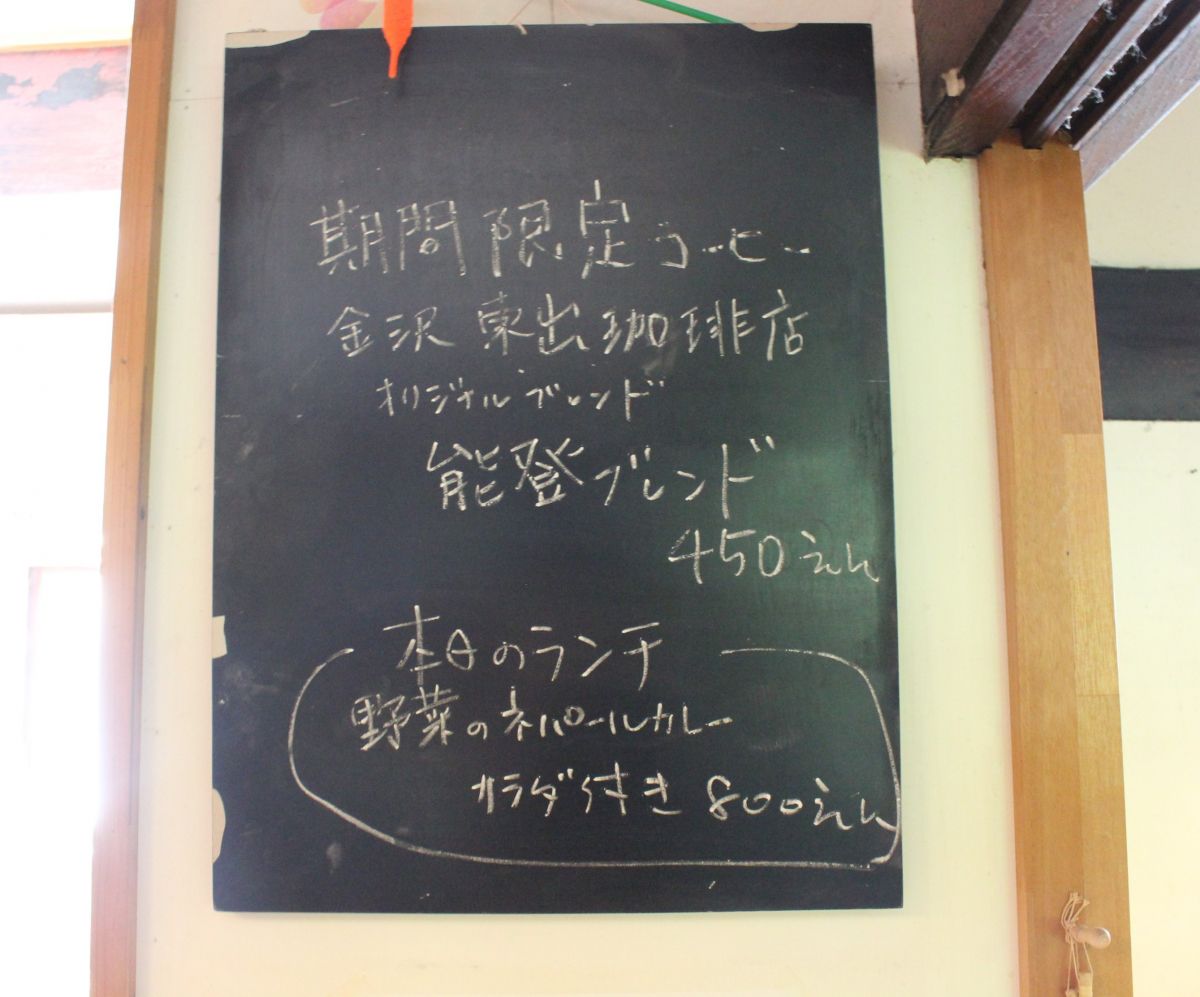 期間限定コーヒー
金沢 東出珈琲店
オリジナルブレンド
能登ブレンド
450えん
本日のランチ
野菜のネパールカレー
サラダ付き 800えん